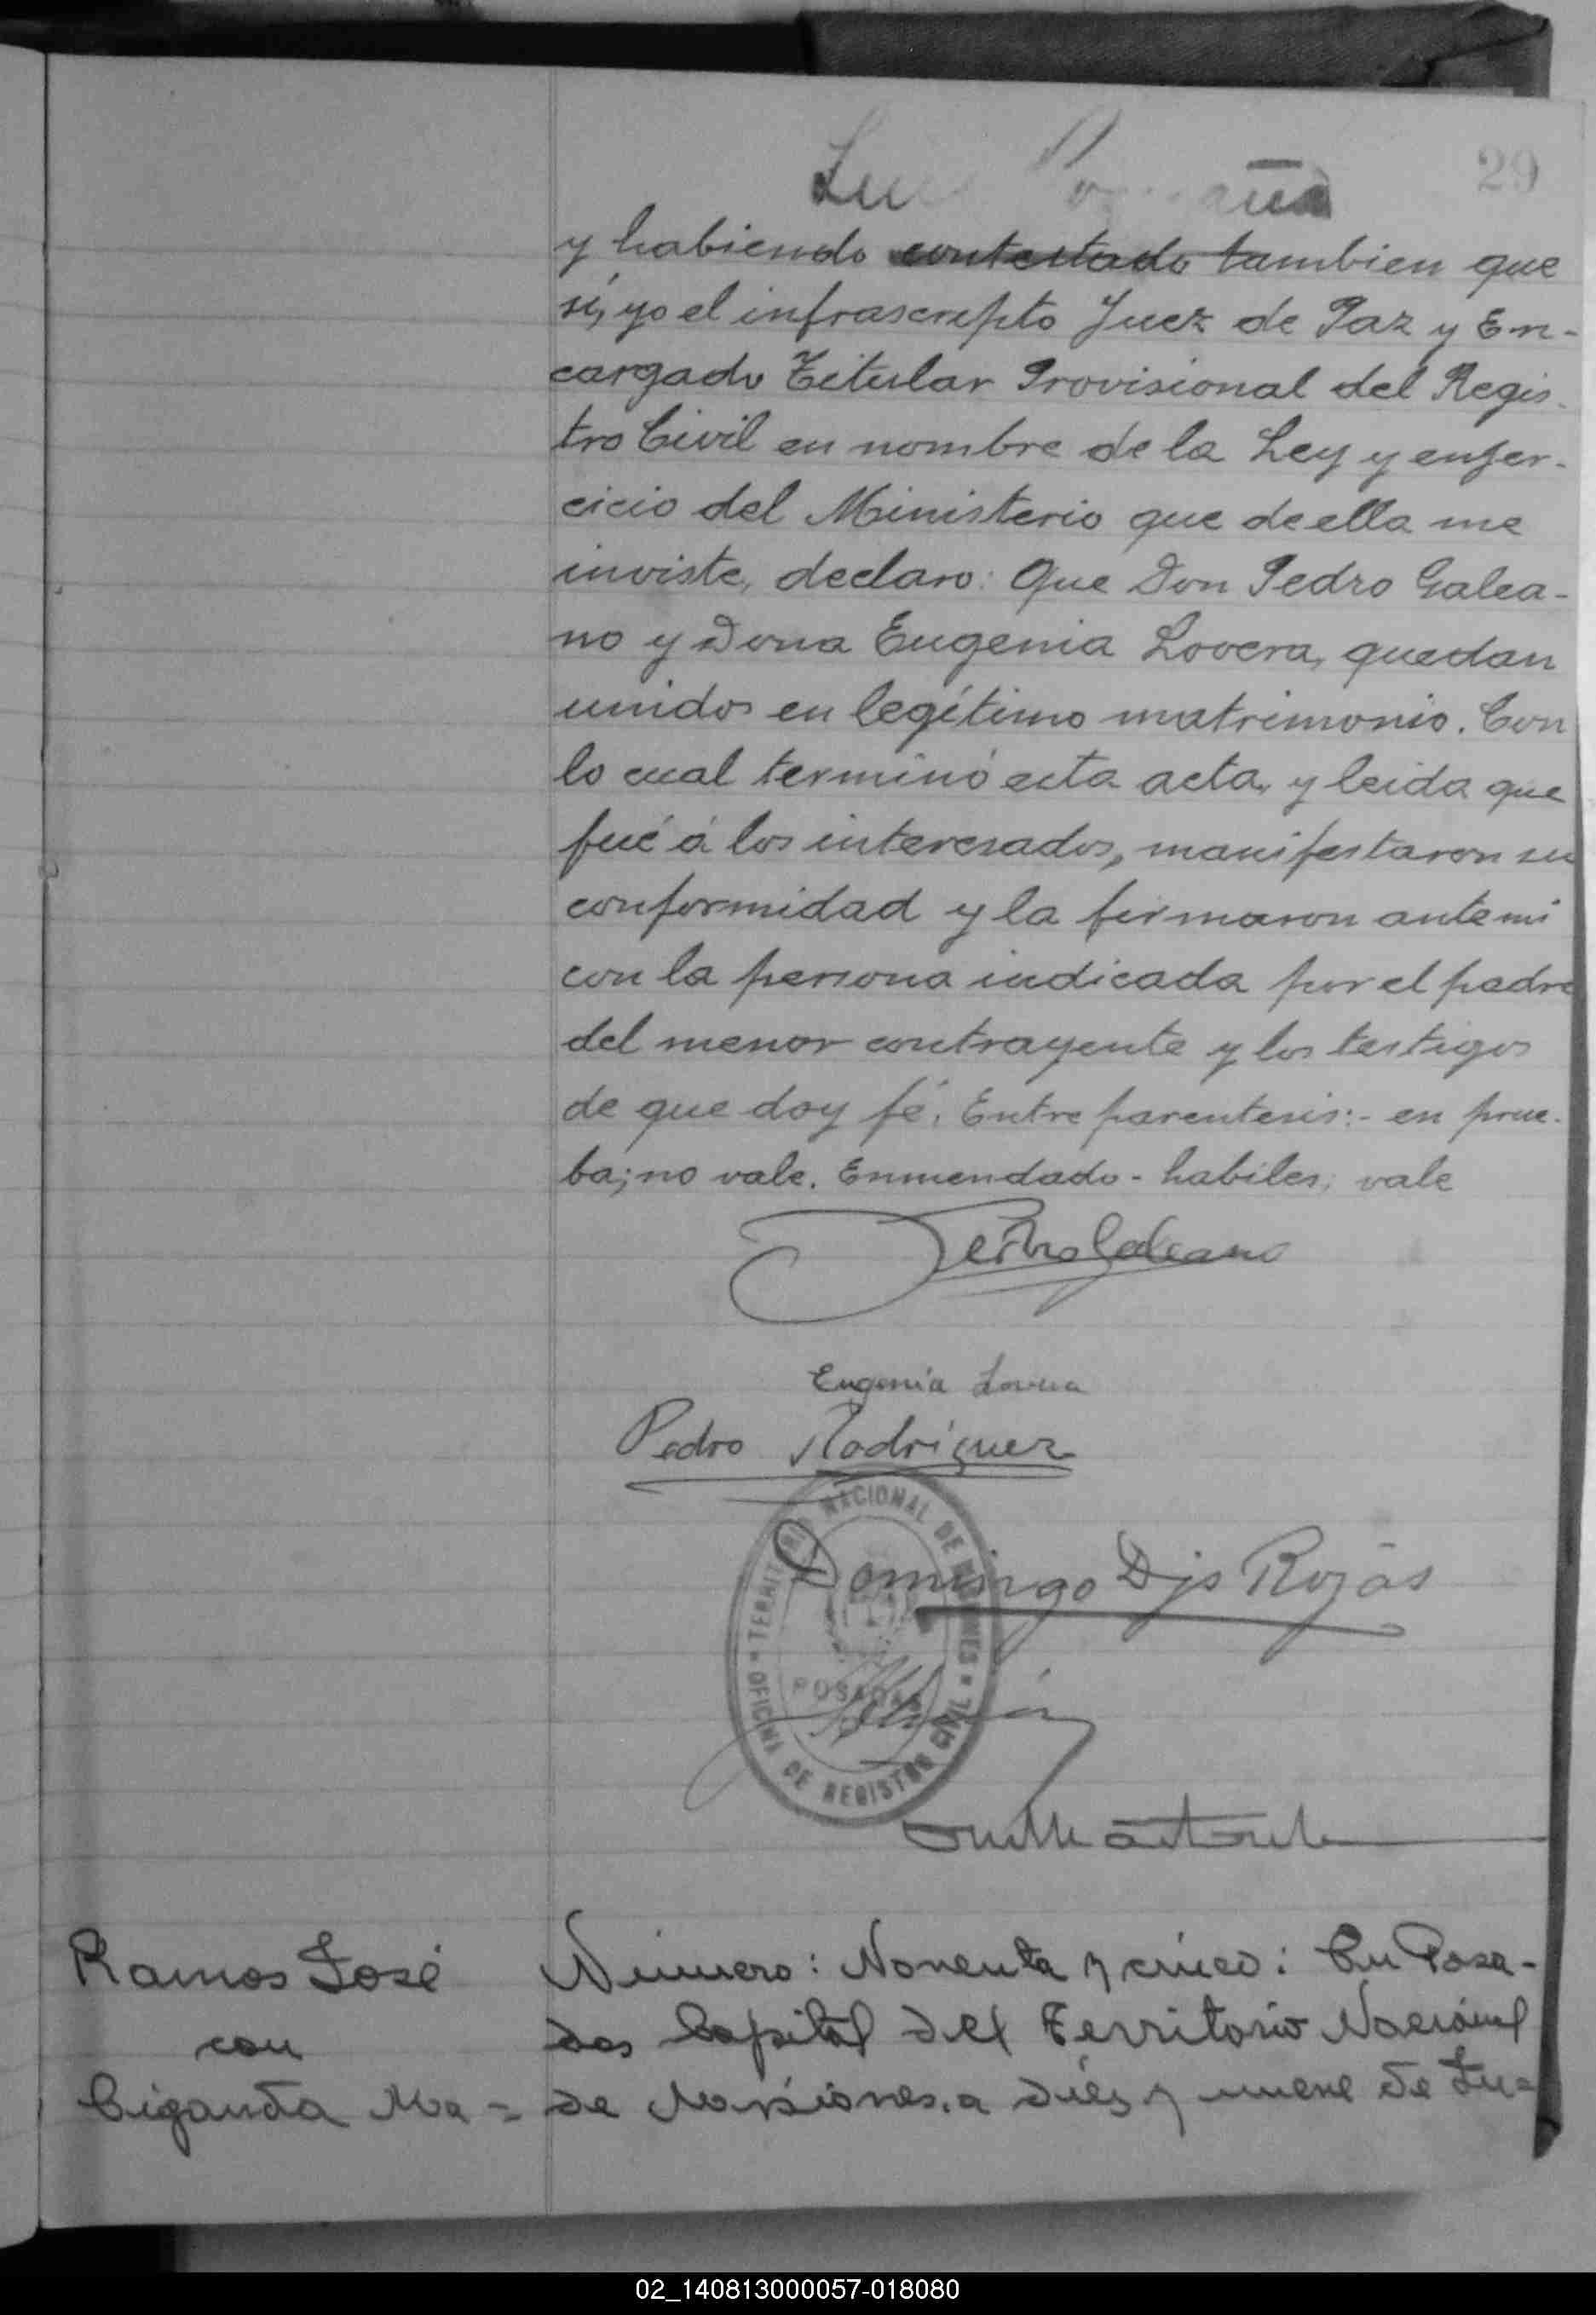 29
y habiendo contestado tambien que
si, yo el infrascripto Juez de Paz y En-
cargado Titular Provisional del Regis-
tro Civil en nombre de la Ley y enjer-
cicio del Ministerio que de ella me
inviste, declaro: Que Don Pedro Galea-
no y Dona Eugenia Lovera, quedan
unidos en legítimo matrimonio. Con
lo cual terminó esta acta, y leida que
fué á los interesados, manifestaron su
conformidad y la firmaron ante mi
con la persona indicada por el padre
del menor contrayente y los testigos
de que doy fé. Entre parentesis:- en prue-
ba; no vale. Enmendado - habiles; vale
Pedro Galeano
Eugenia Lovera
Pedro Rodriguez
TERRITORIO NACIONAL DE MISIONES
Domingo Djo Rojas
POSADAS
OFICINA DE REGISTRO CIVIL
Ramos José
con
Ciganda Ma=
Número: Noventa y cinco: En Posa-
das Capital del Territorio Nacional
de Misiones, a diez y nueve de Ju=
02_140813000057-018080